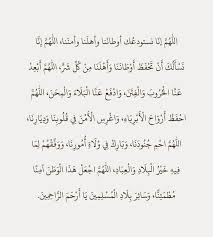 اللَّهُمَّ إِنَّا نَسْتَودِعُكَ أَوطَانَنَا وَأَهلَنَا وَأُمتَنَا، اللَّهُمَّ إِنَّا
نَسأَلُكَ أَنْ تَحْفَظَ أَوْطَانَنَا وَأَهْلَنَا مِنْ كُلِّ شَرٍّ، اللَّهُمَّ أَبْعِد
عَنَّا الحُرُوبَ وَالْفِتَنَ، وَادْفَعْ عَنَّا الْبَلَاءَ وَالْمِحَنَ، اللَّهُمَّ
احْفَظْ أَرْوَاحَ الْأَبْرِيَاءِ، وَاغْرِسِ الْأَمْنَ فِي قُلُوبِنَا وَدِيَارِنَا،
اللَّهُمَّ احْمِ جُنُودَنَا، وَبَارِكْ فِي وُلَاةِ أُمُورِنَا، وَوَفِّقْهُمْ لِمَا
فِيهِ خَيْرُ الْبِلَادِ وَالْعِبَادِ، اللَّهُمَّ اجْعَلْ هَذَا الْوَطَنَ آمِنًا
مُطْمَئِنًّا، وَسَائِرَ بِلَادِ الْمُسْلِمِينَ يَا أَرْحَمَ الرَّاحِمِينَ.